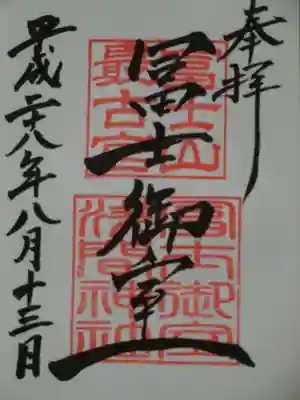 奉拝
冨士御室
冨士山
最古宮
冨士御室
浅間神社
平成二十八年八月十三日